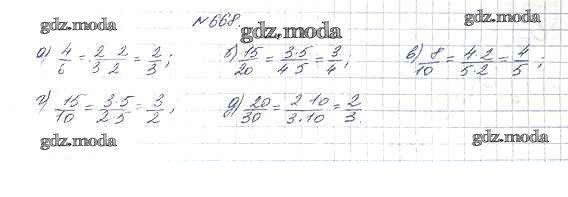 gdz.moda
№668.
gdz.moda
gdz.moda
а) 4/6 = 2·2/3·2 = 2/3; б) 15/20 = 3·5/4·5 = 3/4; в) 8/10 = 4·2/5·2 = 4/5;
г) 15/10 = 3·5/2·5 = 3/2; д) 20/30 = 2·10/3·10 = 2/3.
gdz.moda
gdz.moda